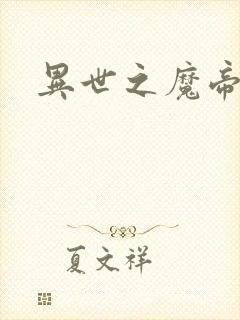 異世之魔帝
夏文祥